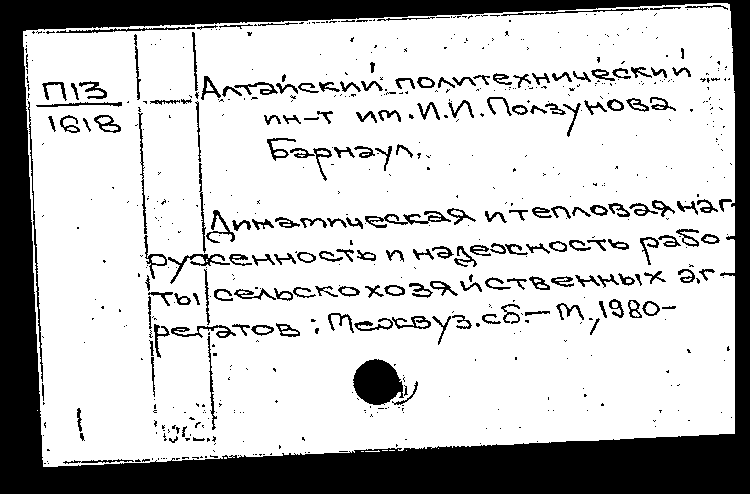 П13
1618
Алтайский политехнический
ин-т им. И.И. Ползунова
Барнаул.
Динамическая и тепловая наг-
руженность и надежность рабо-
ты сельскохозяйственных аг-
регатов: Межвуз. сб. — М., 1980-